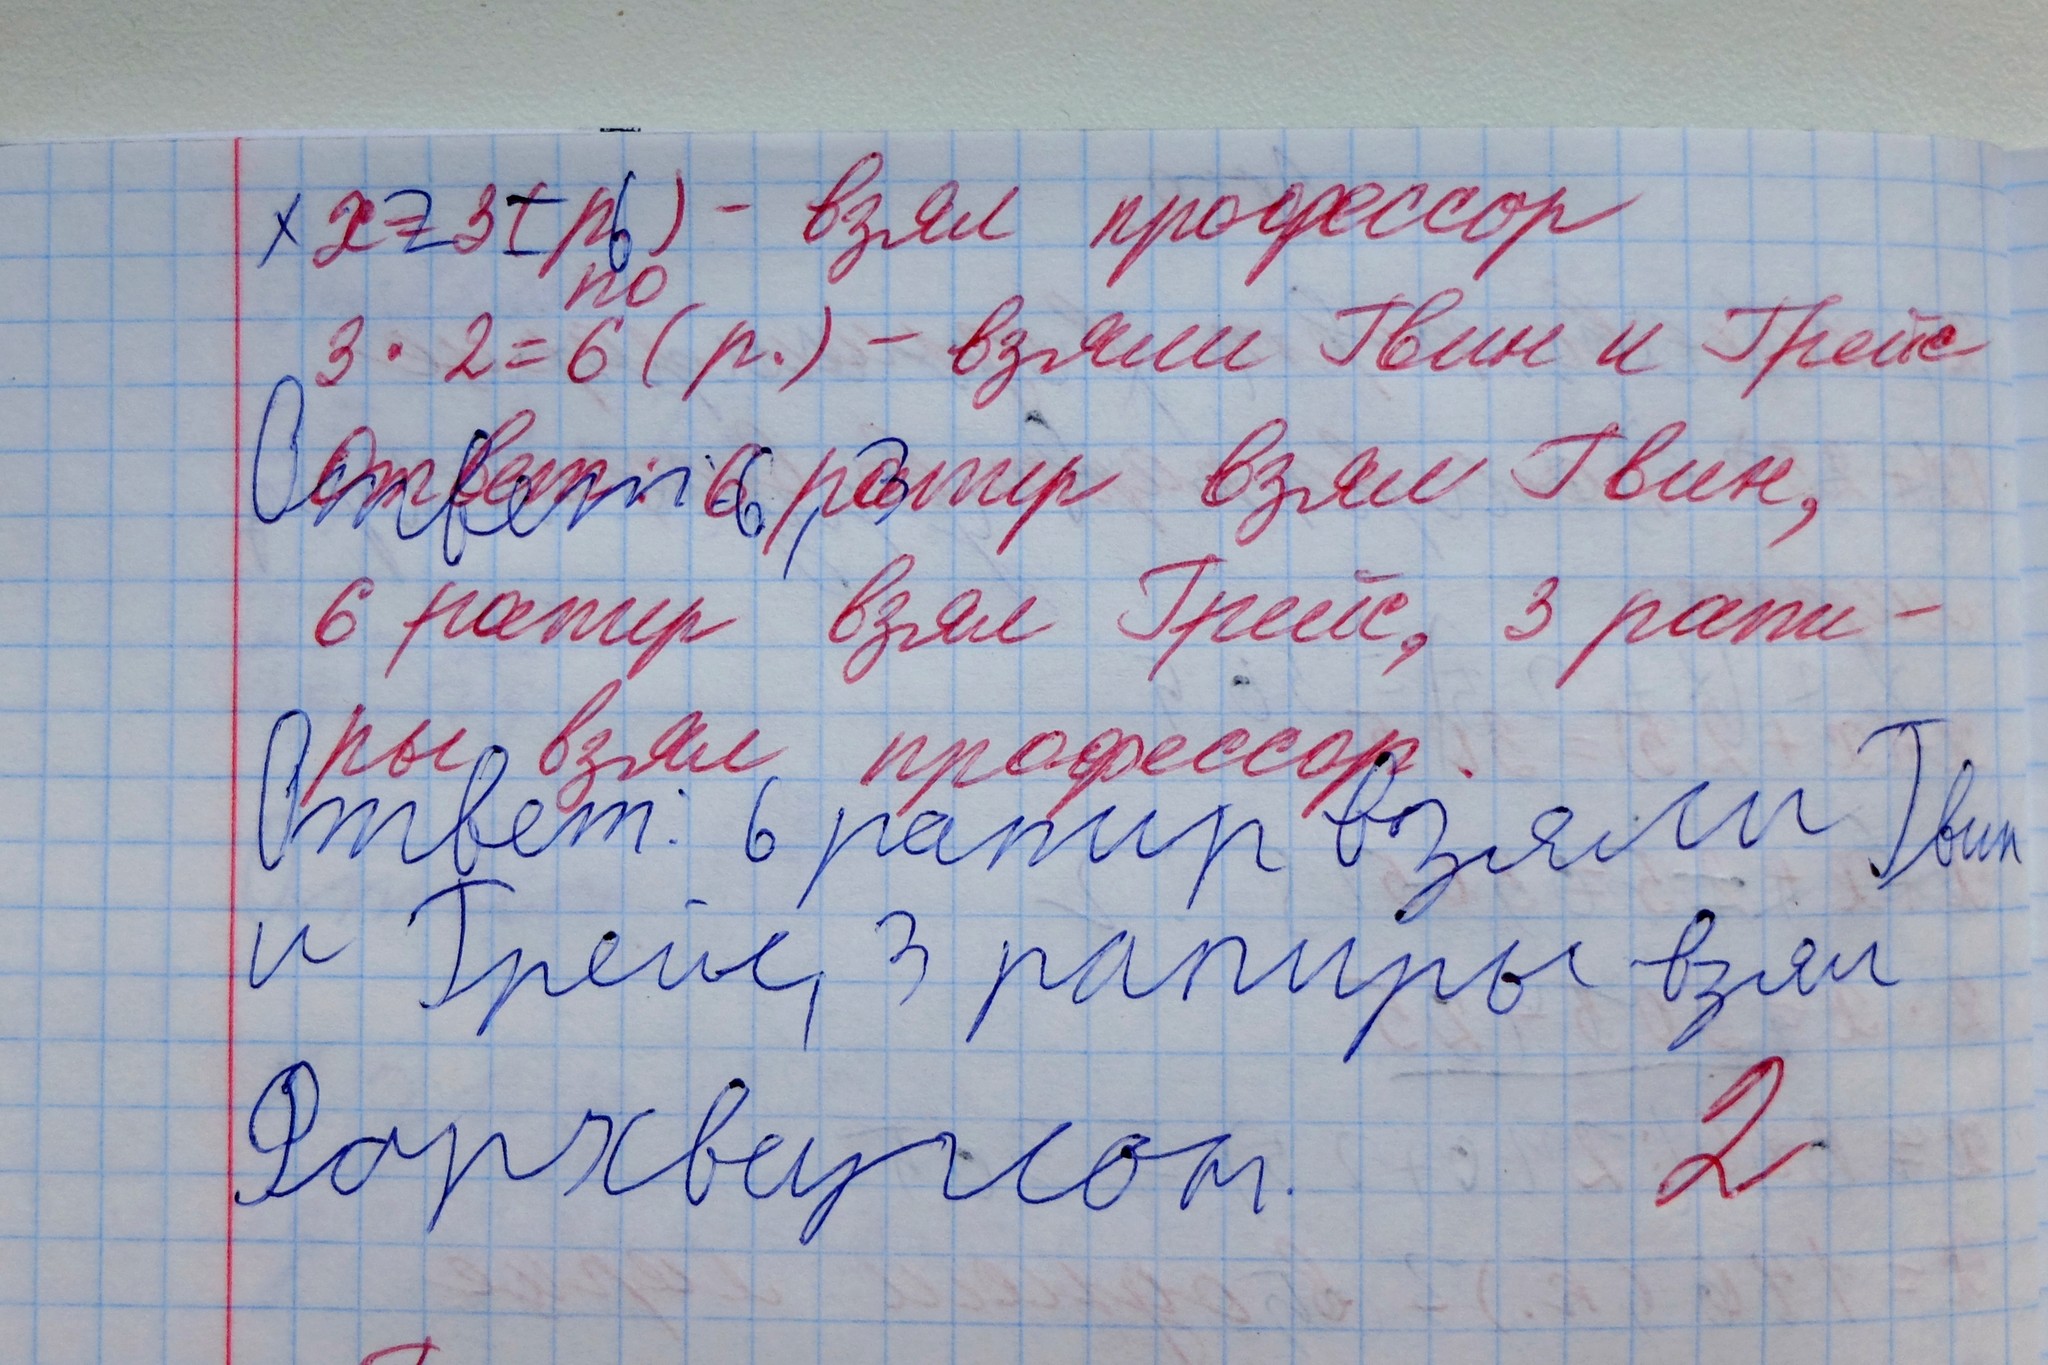 x = 3 (р.) - взял профессор
по
3 · 2 = 6 (р.) - взяли Гвин и Грейс
Ответ: 6 рапир взял Гвин,
Ответ: 6, 3
6 рапир взял Грейс, 3 рапи-
ры взял профессор.
Ответ: 6 рапир взяли Гвин
и Грейс, 3 рапиры взял
2